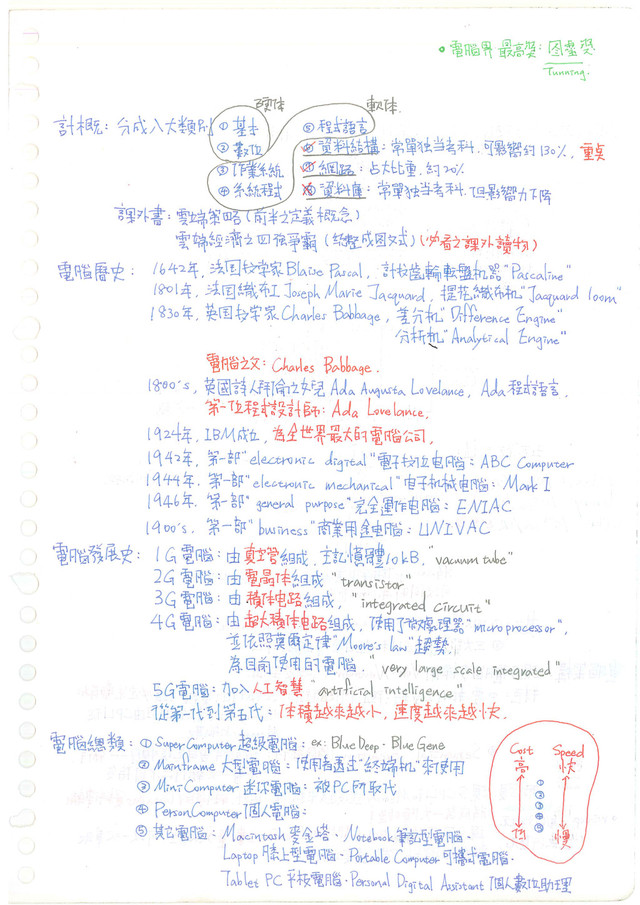 。電腦界最高獎：图靈獎
Tunning.
硬体 軟体
計概：分成八大類別 ① 基本 ⑤ 程式語言
② 數位 ⑥ 資料結構：常單独当考科.可影响約130%，重点
③ 作業系統 ⑦ 網路：占大比重.約20%
④ 系統程式 ⑧ 資料庫：常單独当考科.但影响力下降
課外書：雲端策略(前半之定義概念)
雲端經濟之四強爭霸(統整成图文式)(必看之課外讀物)
電腦歷史：1642年，法国数学家Blaise Pascal，計数齒輪転盤机器"Pascaline"
1801年，法国織布工Joseph Marie Jacquard，提花織布机"Jacquard loom"
1830年，英国数学家Charles Babbage，差分机"Difference Engine"
分析机"Analytical Engine"
電腦之父：Charles Babbage.
1800's，英國詩人拜倫之女兒 Ada Augusta Lovelance，Ada程式語言.
第一位程式設計師：Ada Lovelance.
1924年，IBM成立，為全世界最大的電腦公司，
1942年，第一部"electronic digital"電子数位电腦：ABC Computer
1944年.第一部"electronic mechanical"电子机械电腦：Mark I
1946年.第一部"general purpose"完全運作电腦：ENIAC
1900's.第一部"business"商業用途电腦：UNIVAC
電腦發展史：1G電腦：由真空管組成.主記憶體10kB，"vacuum tube"
2G電腦：由電晶体組成"transistor"
3G電腦：由積体电路組成，"integrated circuit"
4G電腦：由超大積体电路組成，使用了微處理器"microprocessor"，
並依照莫爾定律"Moore's law"趨勢，
為目前使用的電腦."very large scale integrated"
5G電腦：加入人工智慧"artificial intelligence"
從第一代到第五代：体積越來越小，速度越來越快.
電腦總類：① SuperComputer超級電腦：ex: Blue Deep、Blue Gene
② Mainframe 大型電腦：使用者透过"終端机"來使用
③ MiniComputer 迷你電腦：被PC所取代
④ PersonComputer 個人電腦：
⑤ 其它電腦：Macintosh 麥金塔、Notebook筆記型電腦、
Laptop膝上型電腦、Portable Computer可攜式電腦、
Tablet PC 平板電腦、Personal Digital Assistant個人數位助理
Cost Speed
高 快
①
②
③
④
⑤
低 慢